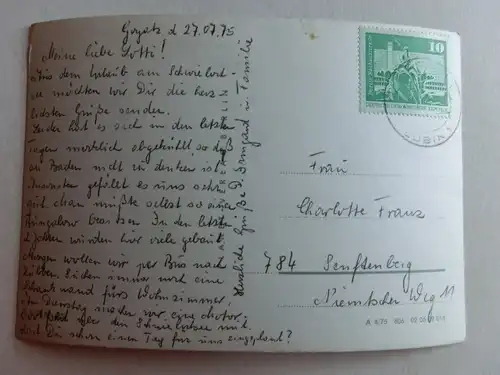 Goyatz d 27.07.75
Meine liebe Lotti!
Aus dem Urlaub am Schwieloch-
see möchten wir Dir die herz-
lichsten Grüße senden.
Leider hat es sich in den letzten
Tagen merklich abgekühlt, so daß
an Baden nicht zu denken ist.
Ansonsten gefällt es uns sehr
gut, man müßte selbst so einen
Bungalow besitzen. In den letzten
Jahren wurden hier viele gebaut.
Morgen wollen wir per Bus nach
Lübben. Suchen immer noch eine
Schrankwand fürs Wohnzimmer.
Am Dienstag machen wir eine
über den Schwielochsee mit.
Hast Du schon einen Tag für uns eingeplant?
Herzliche Grüße D. Irmgard u. Familie
10
DEUTSCHE DEMOKRATISCHE REPUBLIK
Frau
Charlotte Franz
784 Senftenberg
Niemtscher Weg 11
A 6/75